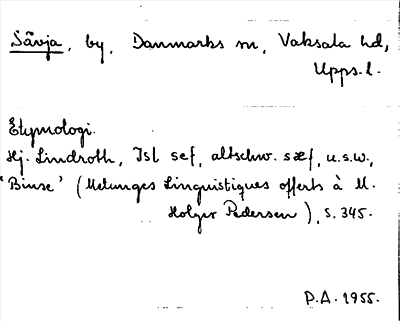 Sävja, by, Danmarks sn, Vaksala hd,
Upps. l.
Etymologi.
Hj. Lindroth, Isl sef, altschw. sæf, u.s.w.,
'Binse' (Melanges Linguistiques offerts à M.
Holger Pedersen), s. 345.
P.A. 1955.